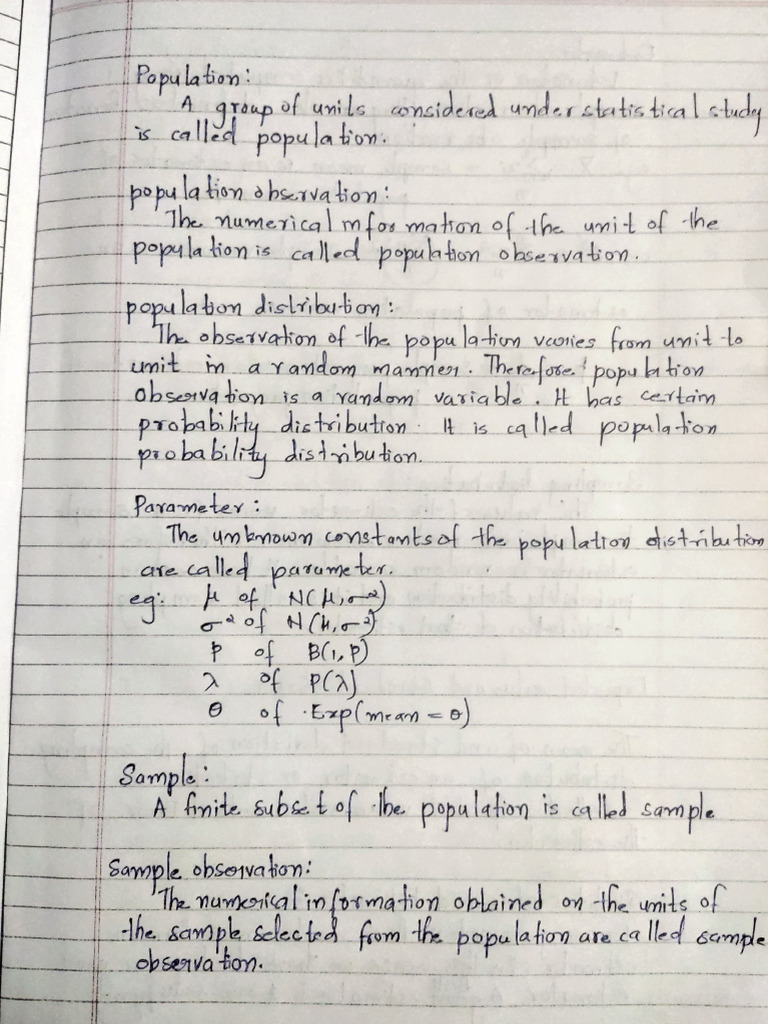 Population:
A group of units considered under statistical study
is called population.
population observation:
The numerical information of the unit of the
population is called population observation.
population distribution:
The observation of the population varies from unit to
unit in a random manner. Therefore population
observation is a random variable. It has certain
probability distribution. It is called population
probability distribution.
Parameter:
The unknown constants of the population distribution
are called parameter.
eg: μ of N(μ,σ²)
σ² of N(μ,σ²)
P of B(1,P)
λ of P(λ)
θ of Exp(mean = θ)
Sample:
A finite subset of the population is called sample
Sample observation:
The numerical information obtained on the units of
the sample selected from the population are called sample
observation.